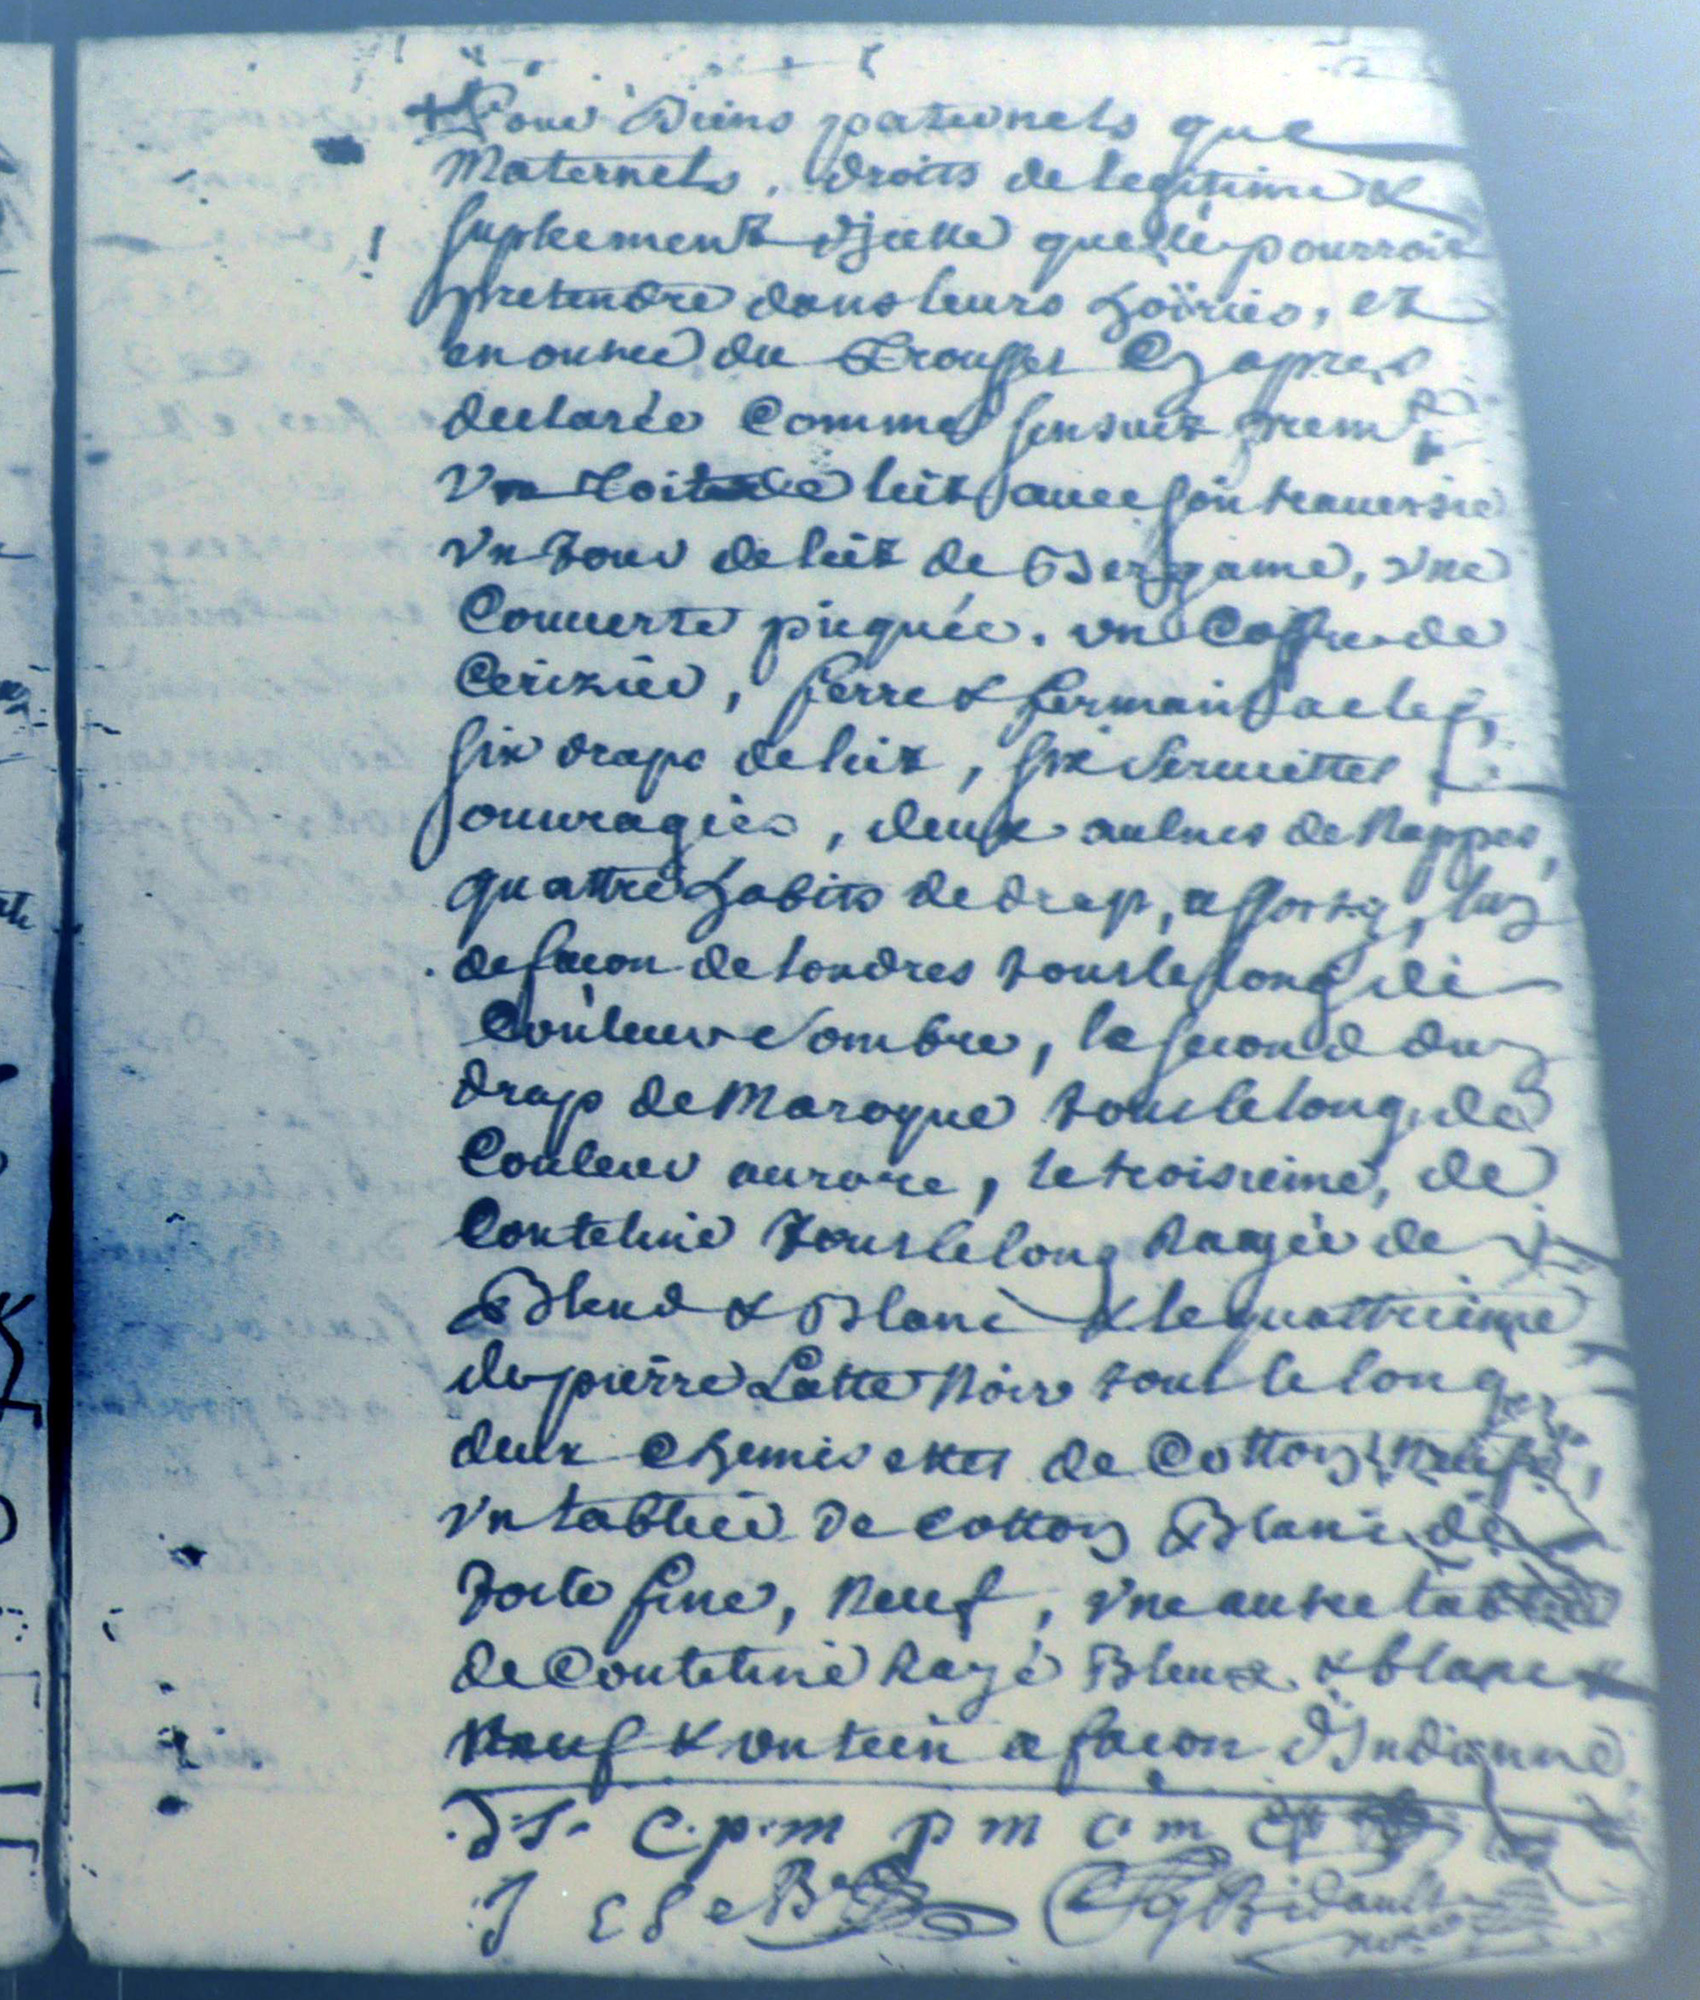 Pour Biens paternels que
Maternels, droits de legitime &
suplement d'jcelle quelle pourroit
pretendre dans leurs hoiries, et
en outre du Troussel Cy apres
declaré Comme sensuit prem^t
Vn toitte de lict auec son trauersie
vn tour de lict de Bergame, vne
Couuerte picquée, vn Coffre de
Cerizier, ferre & fermant a clef,
six draps de lict, six seruiettes
ouuragées, deux aulnes de Nappes,
quattre habits de drap, assortis, lun
de facon de londres tout le long de
Couleur sombre, le second du
drap de Maroque tout le long, de
Couleur aurore, le troisieme, de
Conteline tout le long Rayée de
Bleud & Blanc & le quattrieme
de pierre Latte Noir tout le long
deux Chemisettes de Cotton Neufs,
vn tablier de cotton Blanc de
toite fine, Neuf, vne autre tablie
de Conteline Rayé Bleux & blanc
Neuf & vn tiein a facon d'Indienne
J. T. C. p. m p m c m
J E S e B Bidault